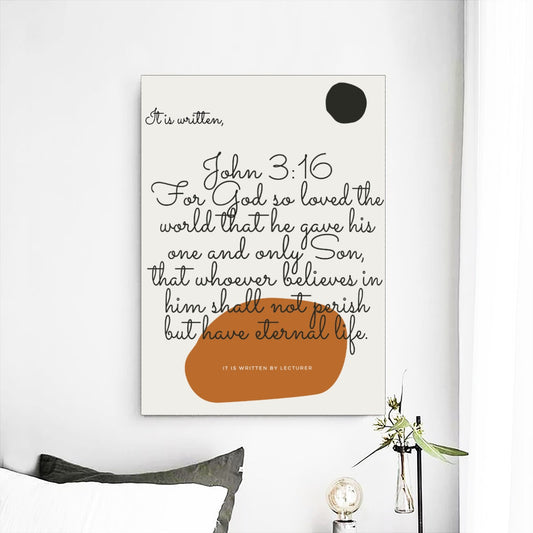 It is written,
John 3:16
For God so loved the
world that he gave his
one and only Son,
that whoever believes in
him shall not perish
but have eternal life.
IT IS WRITTEN BY LECTURER